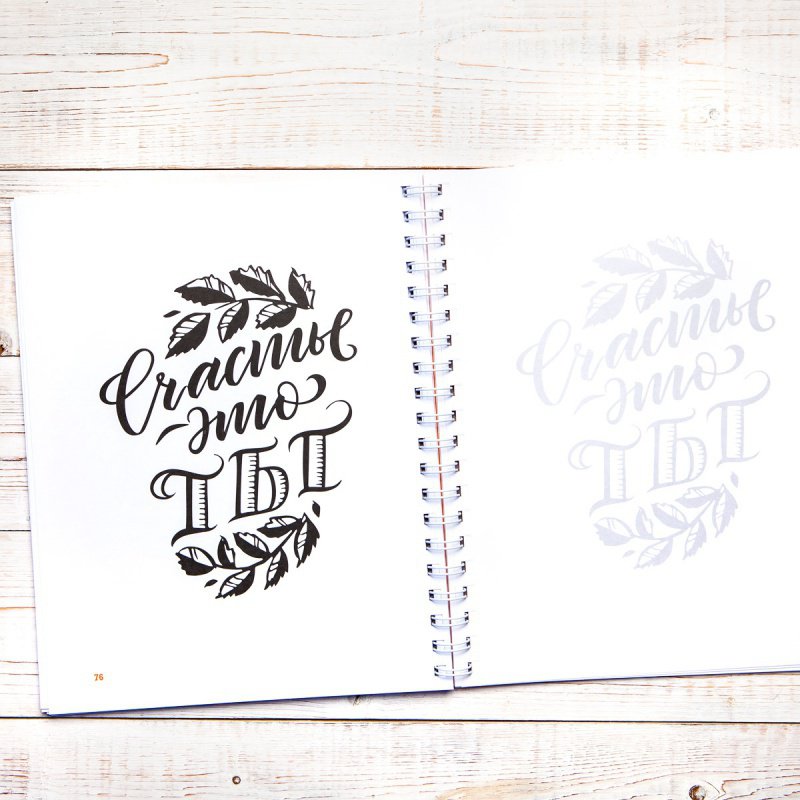 Счастье
-это
ТЫ
76
Счастье
-это
ТЫ